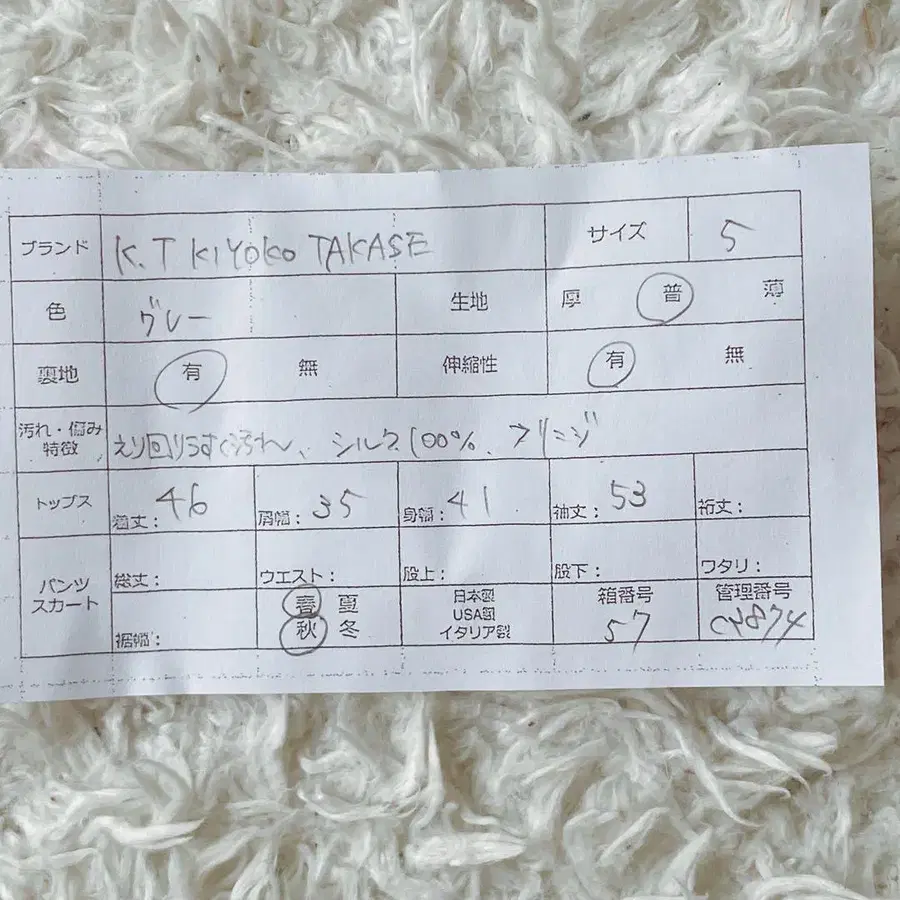 ブランド K.T KIYOKO TAKASE サイズ 5
色 グレー 生地 厚 普 薄
裏地 有 無 伸縮性 有 無
汚れ・傷み
特徴 えり回りうすく汚れ、シルク100%、フリンジ
トップス 着丈: 46 肩幅: 35 身幅: 41 袖丈: 53 裄丈:
パンツ
スカート 総丈: ウエスト: 股上: 股下: ワタリ:
裾幅: 春 夏
秋 冬
日本製
USA製
イタリア製
箱番号
57
管理番号